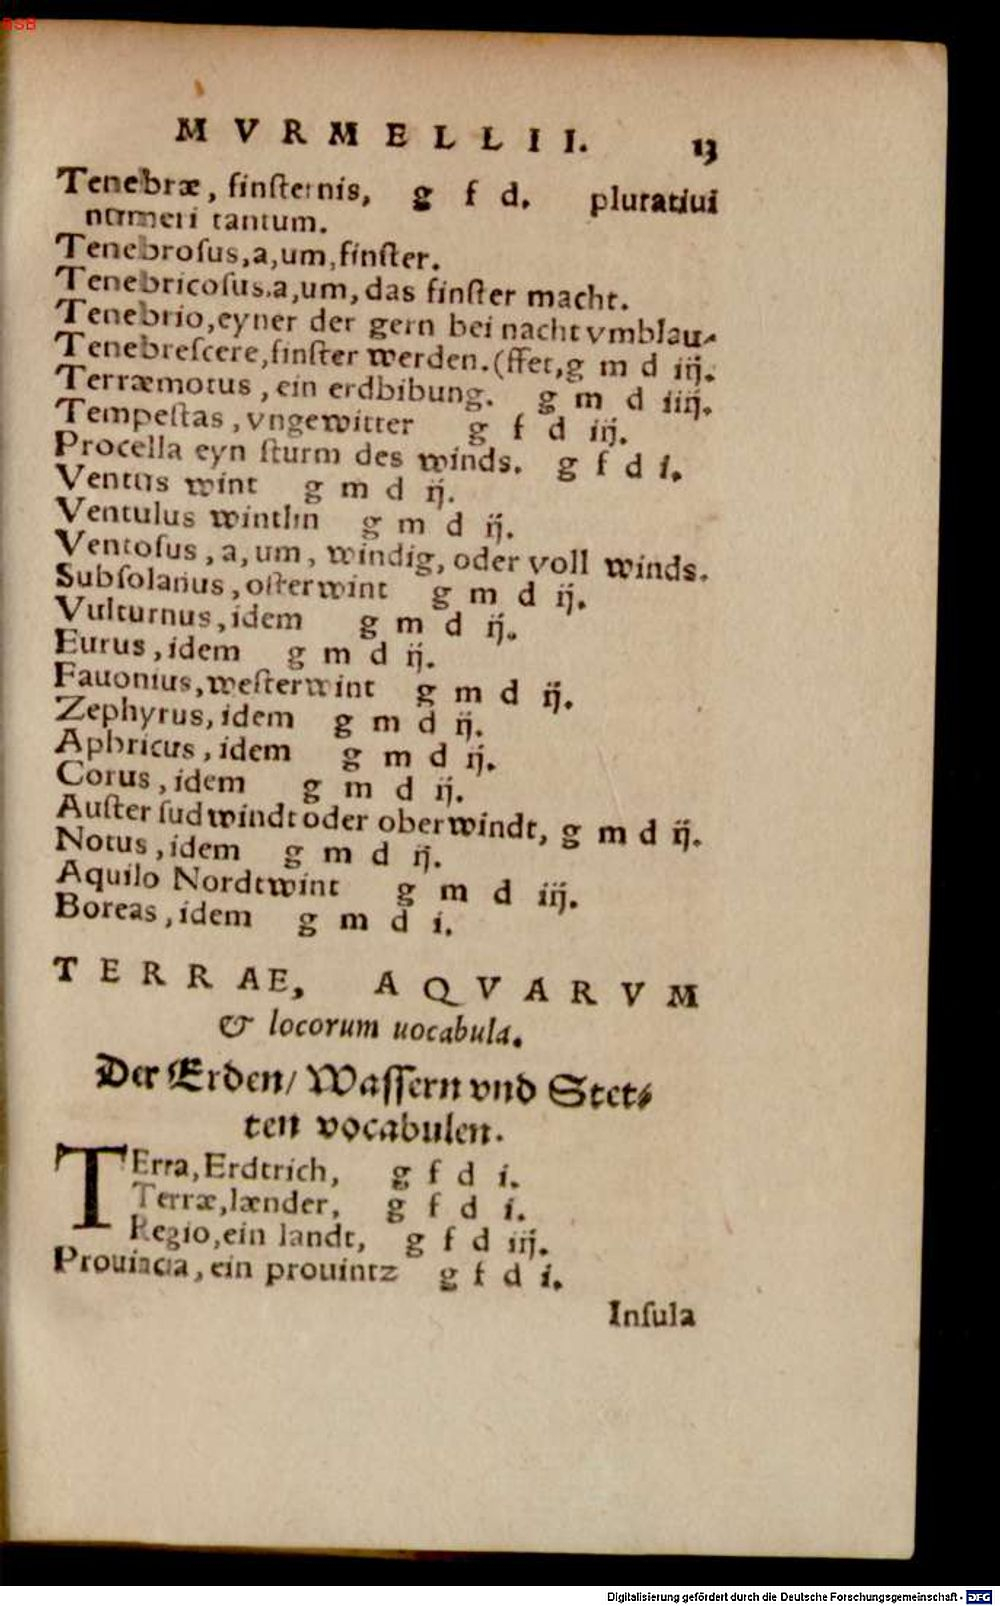 BSB
MVRMELLII. 13
Tenebræ, finſternis, g f d. pluratiui
numeri tantum.
Tenebroſus,a,um,finſter.
Tenebricoſus,a,um,das finſter macht.
Tenebrio,eyner der gern bei nacht vmblau-
Tenebreſcere,finſter werden.(ffet,g m d iij.
Terræmotus, ein erdbibung. g m d iiij.
Tempeſtas, vngewitter g f d iij.
Procella eyn ſturm des winds. g f d i.
Ventus wint g m d ij.
Ventulus wintlin g m d ij.
Ventoſus, a, um, windig, oder voll winds.
Subſolanus, oſterwint g m d ij.
Vulturnus, idem g m d ij.
Eurus, idem g m d ij.
Fauonius, weſterwint g m d ij.
Zephyrus, idem g m d ij.
Aphricus, idem g m d ij.
Corus, idem g m d ij.
Auſter ſudwindt oder oberwindt, g m d ij.
Notus, idem g m d ij.
Aquilo Nordtwint g m d iij.
Boreas, idem g m d i.
TERRAE, AQVARVM
& locorum uocabula.
Der Erden/ Waſſern vnd Stet-
ten vocabulen.
TErra, Erdtrich, g f d i.
Terræ, lænder, g f d i.
Regio, ein landt, g f d iij.
Prouincia, ein prouintz g f d i.
Inſula
Digitalisierung gefördert durch die Deutsche Forschungsgemeinschaft - DFG